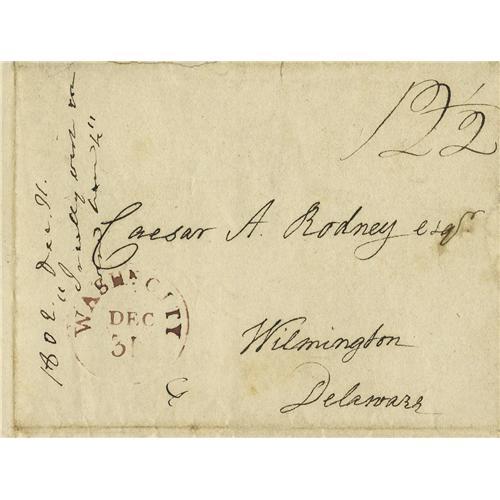 12½
Caesar A. Rodney esqr.
Wilmington
Delaware
WASHN. CITY
DEC
31
1802. Dec. 31.